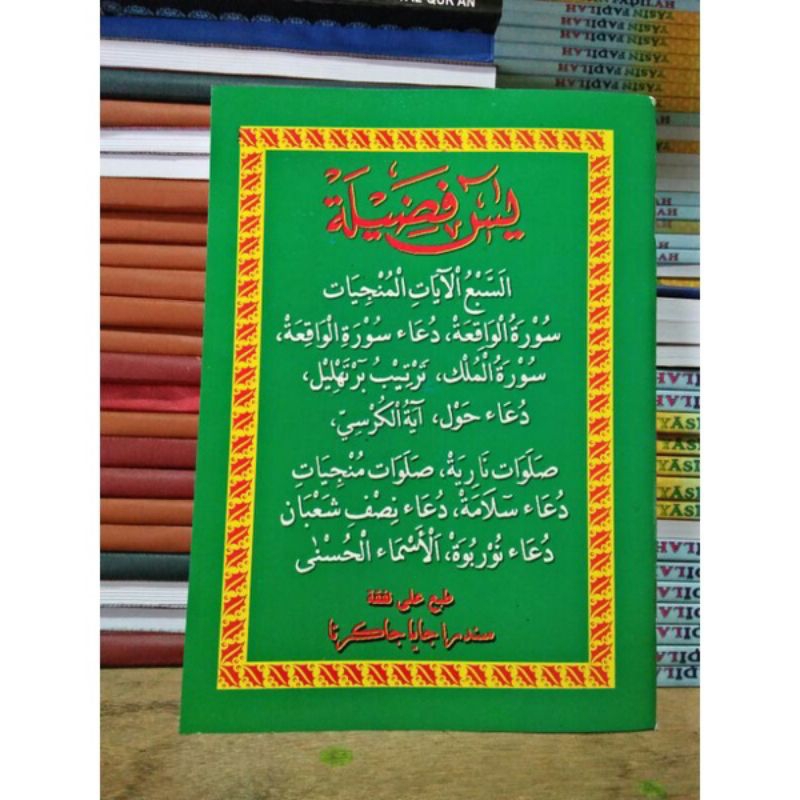 AL QUR'AN
يٰسٓ فَضِيْلَة
اَلسَّبْعُ الْاٰيَاتِ الْمُنْجِيَات
سُوْرَةُ الْوَاقِعَةْ، دُعَاء سُوْرَةِ الْوَاقِعَةْ،
سُوْرَةُ الْمُلْك، تَرْتِيْبُ بَرْتَهْلِيْل،
دُعَاء حَوْل، آيَةُ الْكُرْسِيّ،
صَلَوَات نَارِيَةْ، صَلَوَات مُنْجِيَات
دُعَاء سَلَامَةْ، دُعَاء نِصْف شَعْبَان
دُعَاء نُوْرْبُوَةْ، اَلْأَسْمَاء الْحُسْنٰى
طبع على نفقة
سندرا جايا جاكرتا
YASIN FADILAH
YASIN FADILAH
YASIN FADILAH
YASIN FADILAH